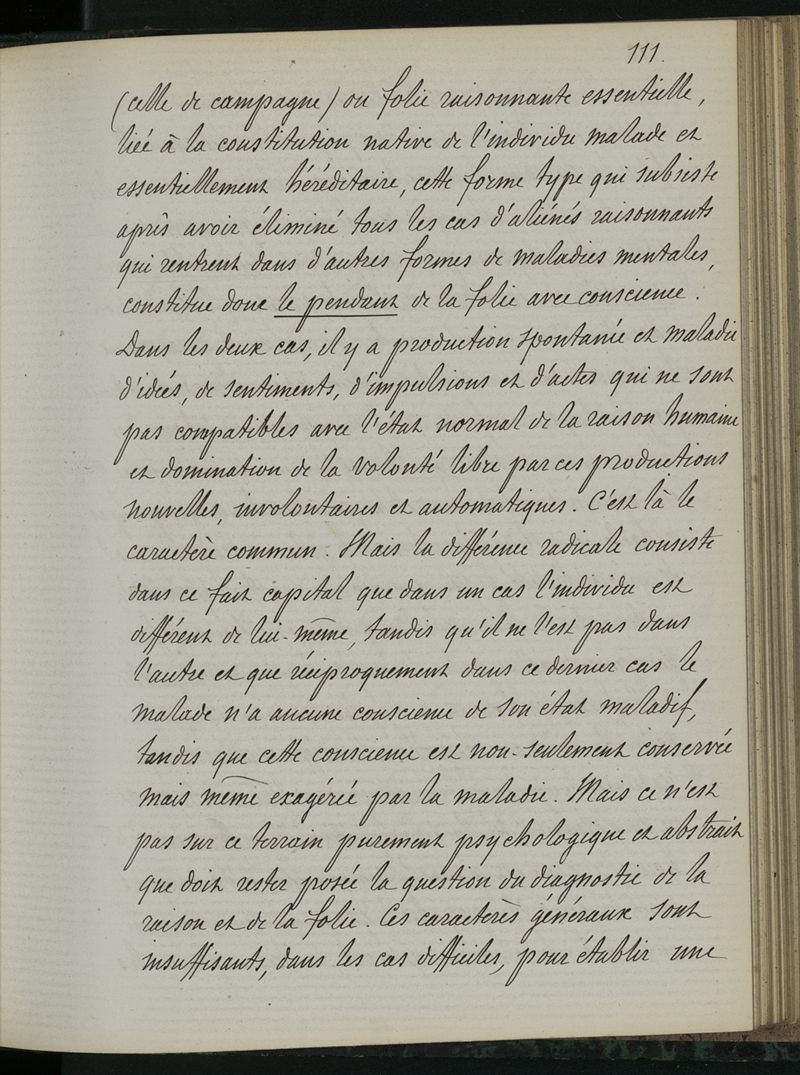 111.
(celle de campagne) ou folie raisonnante essentielle,
liée à la constitution native de l'individu malade et
essentiellement héréditaire, cette forme type qui subsiste
après avoir éliminé tous les cas d'aliénés raisonnants
qui rentrent dans d'autres formes de maladies mentales,
constitue donc le pendant de la folie avec conscience.
Dans les deux cas, il y a production spontanée et maladie
d'idées, de sentiments, d'impulsions et d'actes qui ne sont
pas compatibles avec l'état normal de la raison humaine
et domination de la volonté libre par ces productions
nouvelles, involontaires et automatiques. C'est là le
caractère commun. Mais la différence radicale consiste
dans ce fait capital que dans un cas l'individu est
différent de lui-même, tandis qu'il ne l'est pas dans
l'autre et que réciproquement dans ce dernier cas le
malade n'a aucune conscience de son état maladif,
tandis que cette conscience est non-seulement conservée
mais même exagérée par la maladie. Mais ce n'est
pas sur ce terrain purement psychologique et abstrait
que doit rester posée la question du diagnostic de la
raison et de la folie. Ces caractères généraux sont
insuffisants, dans les cas difficiles, pour établir une